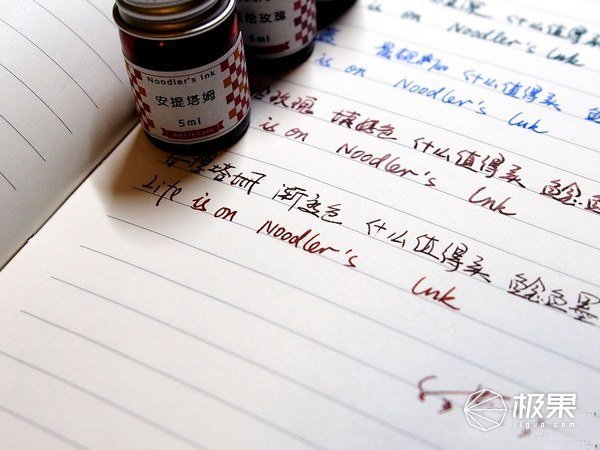 Noodler's Ink
安提塔姆
5ml
Antietam
伦玫瑰
5ml
is on Noodler's Ink
什么值得买
is on Noodler's Ink
玫瑰 什么值得买 鲶鱼
is on Noodler's Ink
安提塔姆 渐变色 什么值得买 鲶鱼墨
Life is on Noodler's Ink
极果
jiguo.com